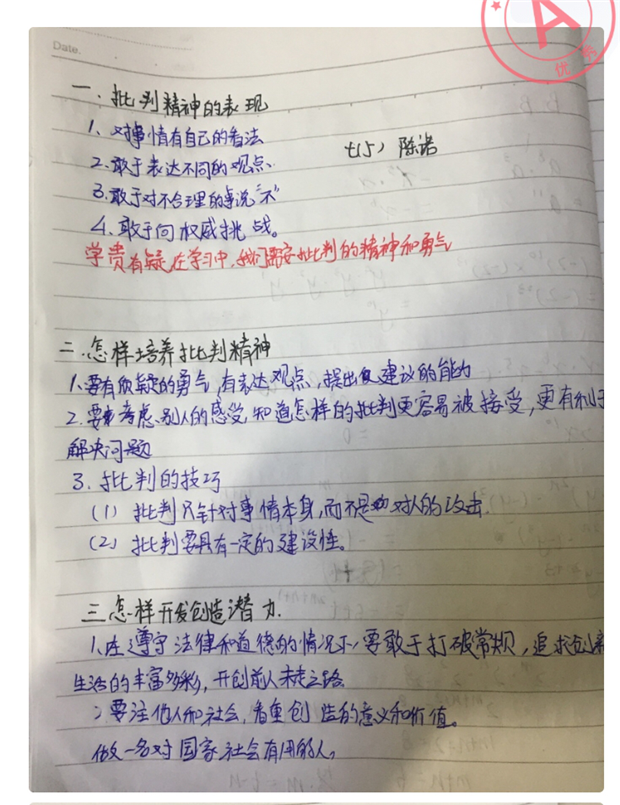 A
优秀
Date.
一、批判精神的表现
1、对事情有自己的看法
七(5) 陈诺
2.敢于表达不同的观点、
3.敢于对不合理的事说“不”
4、敢于向权威挑战。
学贵有疑在学习中,我们需要批判的精神和勇气
二.怎样培养批判精神
1、要有质疑的勇气,有表达观点,提出建议的能力
2.要考虑别人的感受,知道怎样的批判更容易被接受,更有利于
解决问题
3.批判的技巧
(1) 批判只针对事情本身,而不是对人的攻击.
(2) 批判要具有一定的建设性。
三.怎样开发创造潜力.
1、在遵守法律和道德的情况下,要敢于打破常规,追求
生活的丰富多彩,开创前人未走之路
2要注他人和社会,看重创造的意义和价值。
做一名对国家社会有用的人。